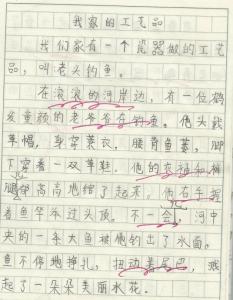 我家的工艺品
我们家有一个瓷器做的工艺
品，叫老头钓鱼。
在滚滚的河岸边，有一位鹤
发童颜的老爷爷在钓鱼。他头戴
草帽，身穿蓑衣，腰背鱼篓，脚
下穿着一双草鞋。他的衣袖和裤
腿都高高地绾了起来。他右手握
着鱼竿举过头顶。不一会，河中
央的一条大鱼被他钓出了水面。
鱼不停地挣扎，扭动着尾巴，溅
起了一朵朵美丽水花。